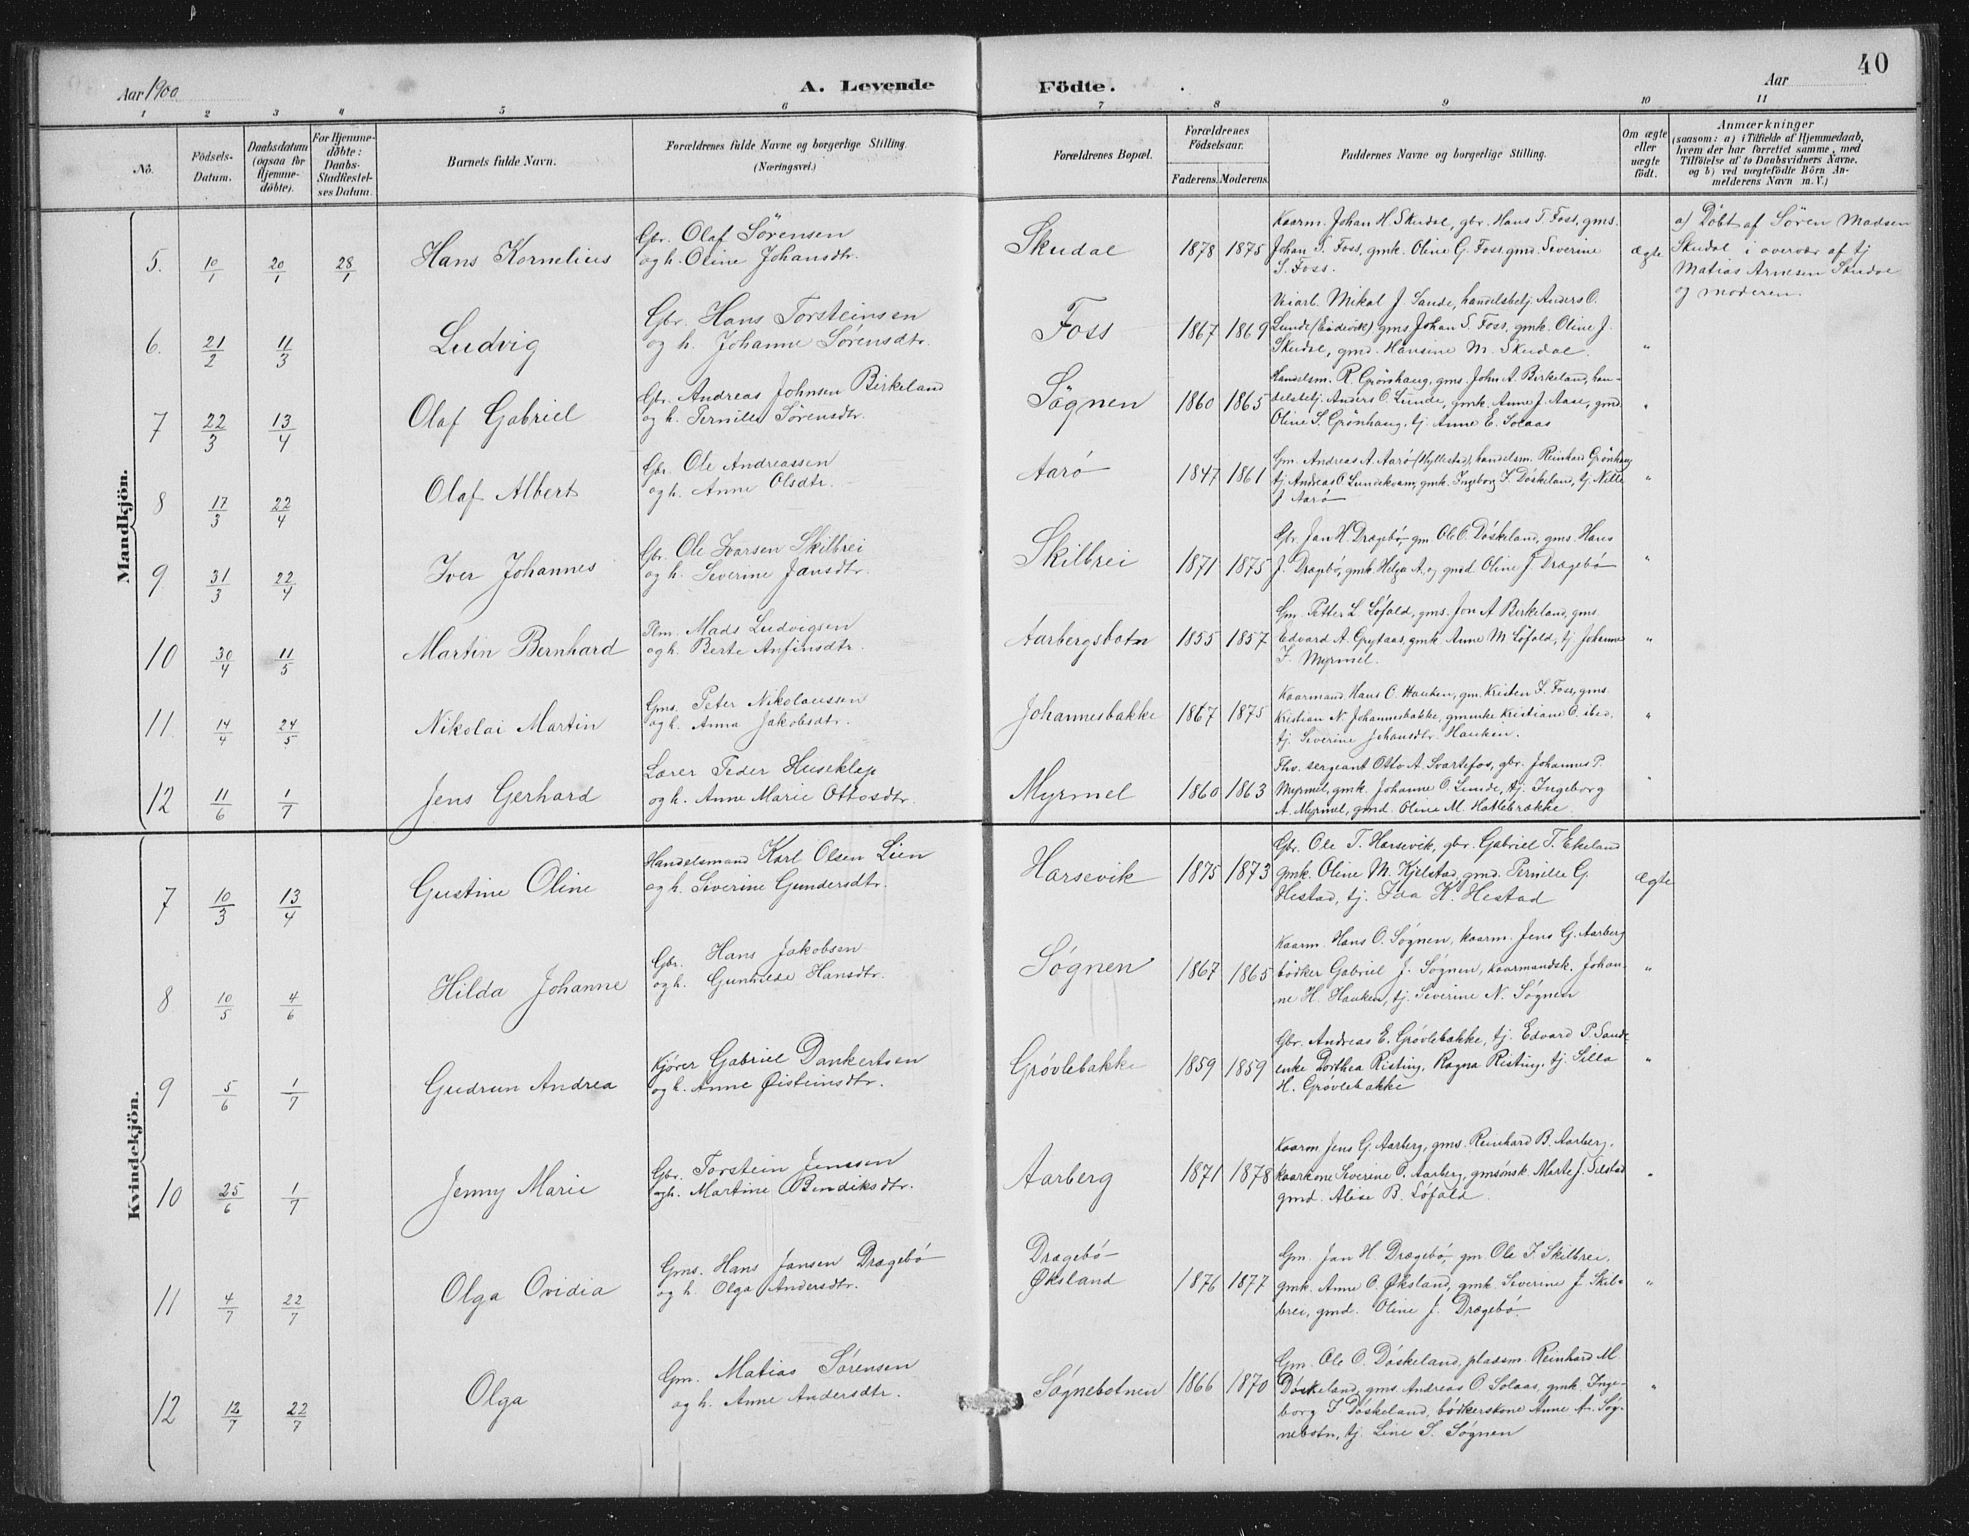 Aar 1900
A. Levende Födte.
Aar
40
1 2 3 4 5 6 7 8 9 10 11
No.
Födsels-Datum.
Daabsdatum (ogsaa for Hjemme-döbte).
For Hjemme-döbte: Daabs-Stadfæstel-ses Datum.
Barnets fulde Navn.
Forældrenes fulde Navne og borgerlige Stilling. (Næringsvei.)
Forældrenes Bopæl.
Forældrenes Födselsaar.
Faderens. Moderens.
Faddernes Navne og borgerlige Stilling.
Om ægte eller uægte födt.
Anmærkninger
(saasom: a) i Tilfælde af Hjemmedaab,
hvem der har forrettet samme, med
Tilföielse af to Daabsvidners Navne,
og b) ved uægtefödte Börn An-
melderens Navn m. V.)
Mandkjön.
5. 10/1 20/1 28/1 Hans Kornelius
Gbr. Olaf Sørensen
og h. Oline Johansdtr.
Skudal 1878 1875
Kaarm. Johan H. Skudal, gbr. Hans T. Foss, gms.
Johan S. Foss, gmk. Oline G. Foss, gmd. Severine
S. Foss.
ægte
a) Døbt af Søren Madsen
Skudal i overvær af tj
Matias Arnesen Skudal
og moderen.
6. 21/2 11/3 Ludvig
Gbr. Hans Torsteinsen
og h. Johanne Sørensdtr.
Foss 1867 1869
Veiarb. Mikal J. Sande, handelsbetj. Anders O.
Lunde (Eidevik) gms Johan S. Foss, gmk. Oline J.
Skudal, gmd. Hansine M. Skudal.
"
7 22/3 13/4 Olaf Gabriel
Gbr. Andreas Johnsen Birkeland
og h. Pernille Sørensdtr.
Søgnen 1860 1865
Handelsm. R. Grønhaug, gms. John A. Birkeland, han-
delsbetj. Anders O. Lunde, gmk. Anne J. Aase, gmd.
Oline S. Grønhaug, tj. Anne E. Solaas
"
8 17/3 22/4 Olaf Albert
Gbr. Ole Andreassen
og h. Anne Olsdtr.
Aarø 1847 1861
Gm. Andreas A. Aarø (Hyllestad), handelsm. Reinhard Grønhaug
tj. Andreas O Lundekvam, gmk. Ingeborg I. Døskeland, tj. Nille
J Aarø
"
9 31/3 22/4 Iver Johannes
Gbr. Ole Ivarsen Skilbrei
og h. Severine Jansdtr.
Skilbrei 1871 1875
Gbr. Jan H. Drægebø, gm Ole O. Døskeland, gms. Hans
J. Drægebø, gmk. Helga A. og gmd. Oline J Drægebø
"
10 30/4 11/5 Martin Bernhard
Plm. Mads Ludvigsen
og h. Berte Anfinsdtr.
Aarbergsbotn 1855 1857
Gm. Petter L. Løfald, gms. Jon A Birkeland, gms.
Edvard A. Grytaas, gmk Anne M Løfald, tj. Johanne
I. Myrmel.
"
11 14/4 24/5 Nikolai Martin
Gms. Peter Nikolaussen
og h. Anna Jakobsdtr.
Johannesbakke 1867 1875
Kaarmand Hans O. Hauken, gm. Kristen I. Foss, gms.
Kristian N. Johannesbakke, gmenke Kristiane O. ibid.
tj. Severine Johansdtr. Hauken.
"
12 11/6 1/7 Jens Gerhard
Lærer Peder Huseklep
og h. Anne Marie Ottosdtr.
Myrmel 1860 1863
Fhv. sergeant Otto A. Svartefos, gbr. Johannes P.
Myrmel, gmk. Johanne O. Lunde, tj. Ingeborg
A. Myrmel, gmd. Oline M. Hatlebrække
"
Kvindekjön.
7 10/3 13/4 Gustine Oline
Handelsmand Karl Olsen Lien
og h. Severine Gundersdtr.
Harsevik 1875 1873
Gbr. Ole T. Harsevik, gbr. Gabriel T. Ekeland
gmk. Oline M. Kjelstad, gmd. Pernille G.
Hestad, tj. Ida K. Hestad
ægte
8 10/5 4/6 Hilda Johanne
Gbr. Hans Jakobsen
og h. Gunhilde Hansdtr.
Søgnen 1867 1865
Kaarm. Hans O. Søgnen, kaarm. Jens G. Aarberg
bødker Gabriel J. Søgnen, kaarmandsk. Johan-
ne H. Hauken, tj. Severine N. Søgnen
"
9 5/6 1/7 Gudrun Andrea
Kjører Gabriel Dankertsen
og h. Anne Øisteinsdtr.
Grøvlebakke 1859 1859
Gbr. Andreas E. Grøvlebakke, tj. Edvard P. Sande
enke Dorthea Risting, Ragna Risting, tj. Silla
H. Grøvlebakke
"
10 25/6 1/7 Jenny Marie
Gbr. Torstein Jenssen
og h. Martine Bendiksdtr.
Aarberg 1871 1878
Kaarm Jens G. Aarberg, gms. Reinhard B. Aarberg,
kaarkone Severine O. Aarberg, gmsønsk. Marte J. Selstad
gmd. Alise B. Løfald.
"
11 4/7 22/7 Olga Ovidia
Gms. Hans Jansen Drægebø
og h. Olga Andersdtr.
Drægebø
Øksland 1876 1877
Gm. Jan H. Drægebø, gm Ole I. Skilbrei,
gmk. Anne O. Øksland, gmk. Severine J. Skil-
brei, gmd. Oline J. Drægebø
"
12 12/7 22/7 Olga
Gm. Matias Sørensen
og h. Anne Andersdtr.
Søgnebotnen 1866 1870
Gm. Ole O. Døskeland, pladsm. Reinhard M.
Døskeland, gms. Andreas O. Solaas, gmk. Inge-
borg I. Døskeland, bødkerskone Anne A. Søg-
nebotn, tj. Line S. Søgnen
"